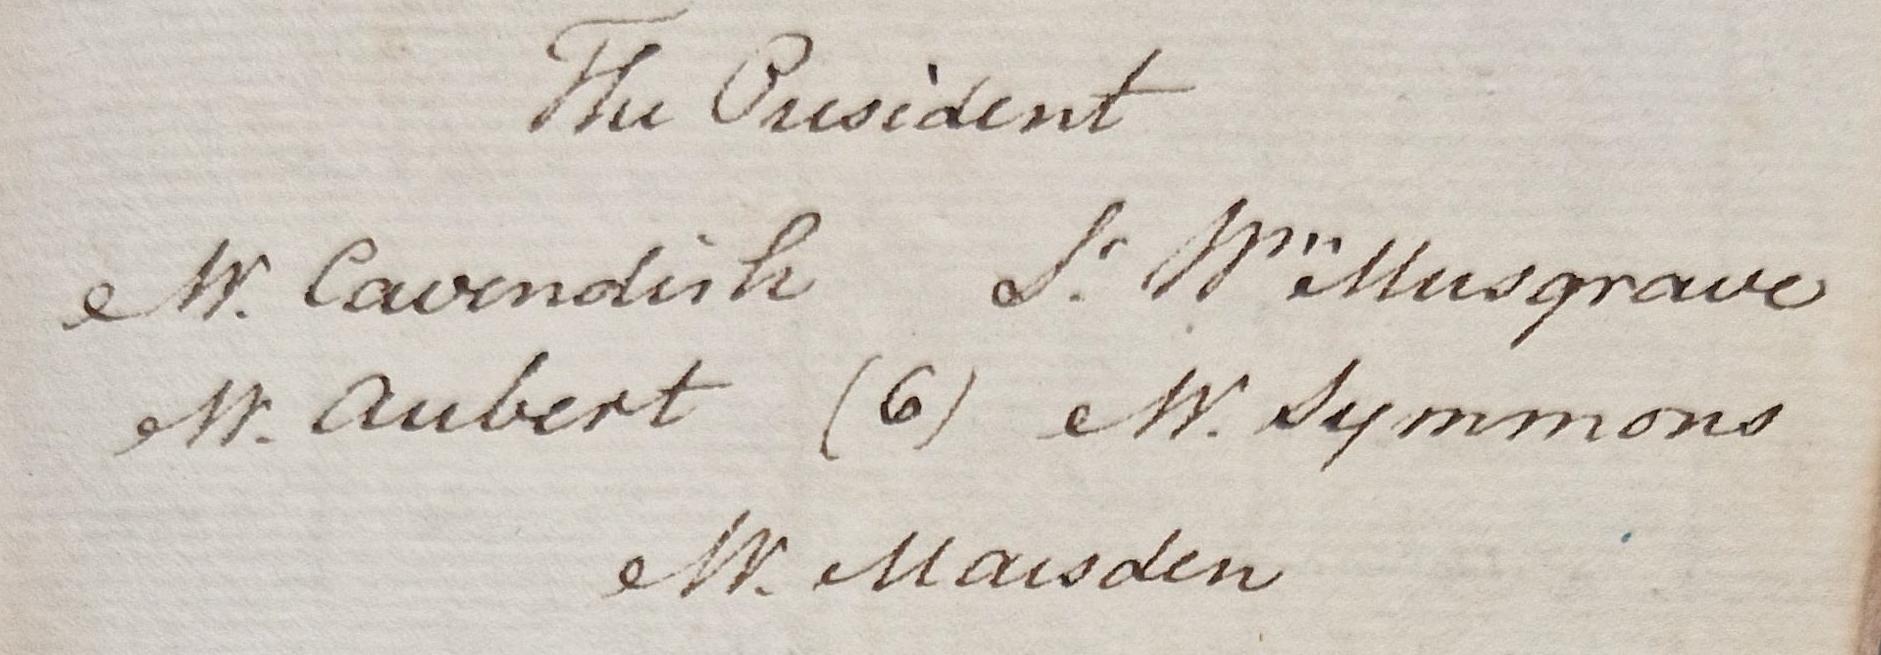 The President
Mr. Cavendish Sr. Wm. Musgrave
Mr. Aubert (6) Mr. Symmons
Mr. Marsden